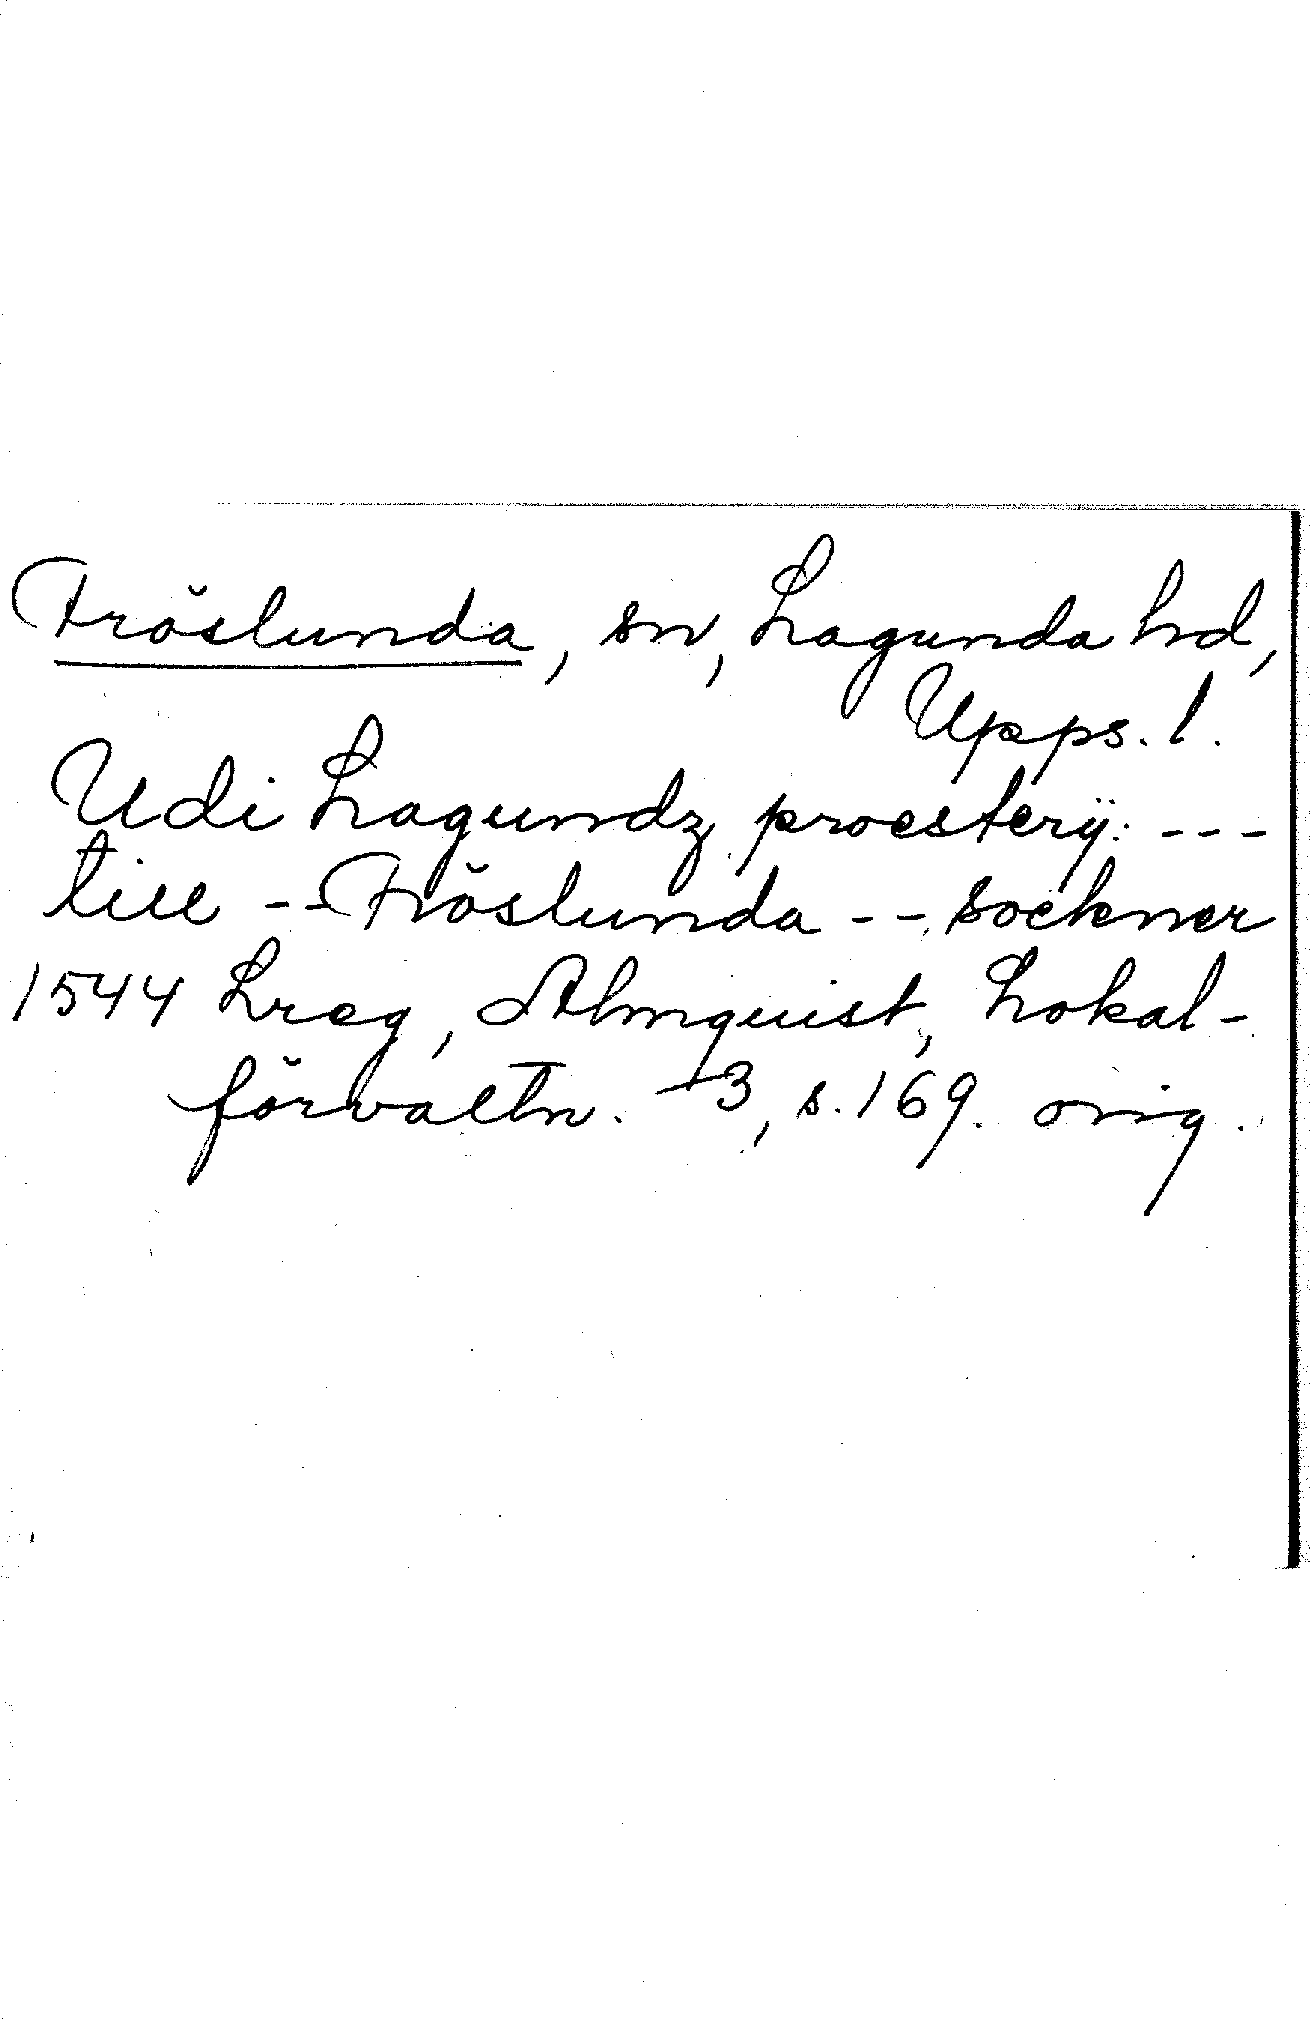 Fröslunda, sn, Lagunda hd,
Upps. l.
Udi Lagundz proesterÿ: ---
till -- Fröslunda -- sockner
1544 Lreg, Almquist, Lokal-
förvaltn. 3, s. 169. orig.